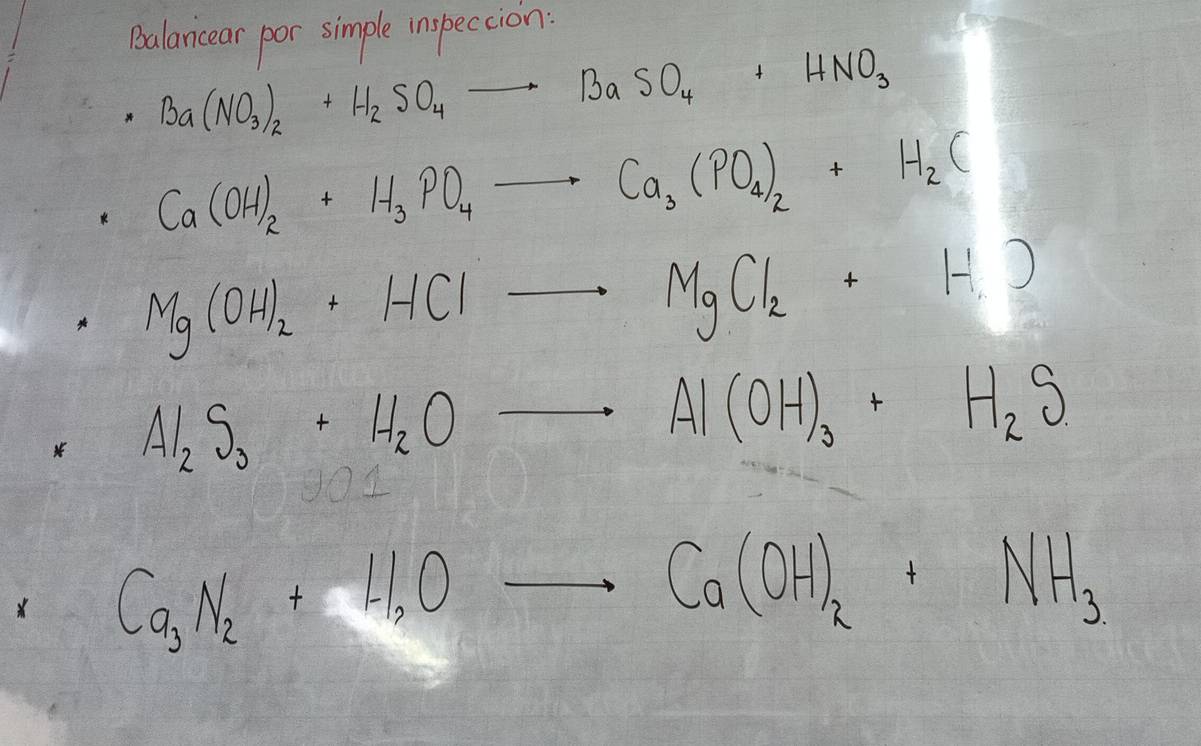 Balancear por simple inspección:
* Ba(NO₃)₂ + H₂SO₄ → BaSO₄ + HNO₃
* Ca(OH)₂ + H₃PO₄ → Ca₃(PO₄)₂ + H₂
* Mg(OH)₂ + HCl → MgCl₂ + H O
* Al₂S₃ + H₂O → Al(OH)₃ + H₂S.
* Ca₃N₂ + H₂O → Ca(OH)₂ + NH₃.